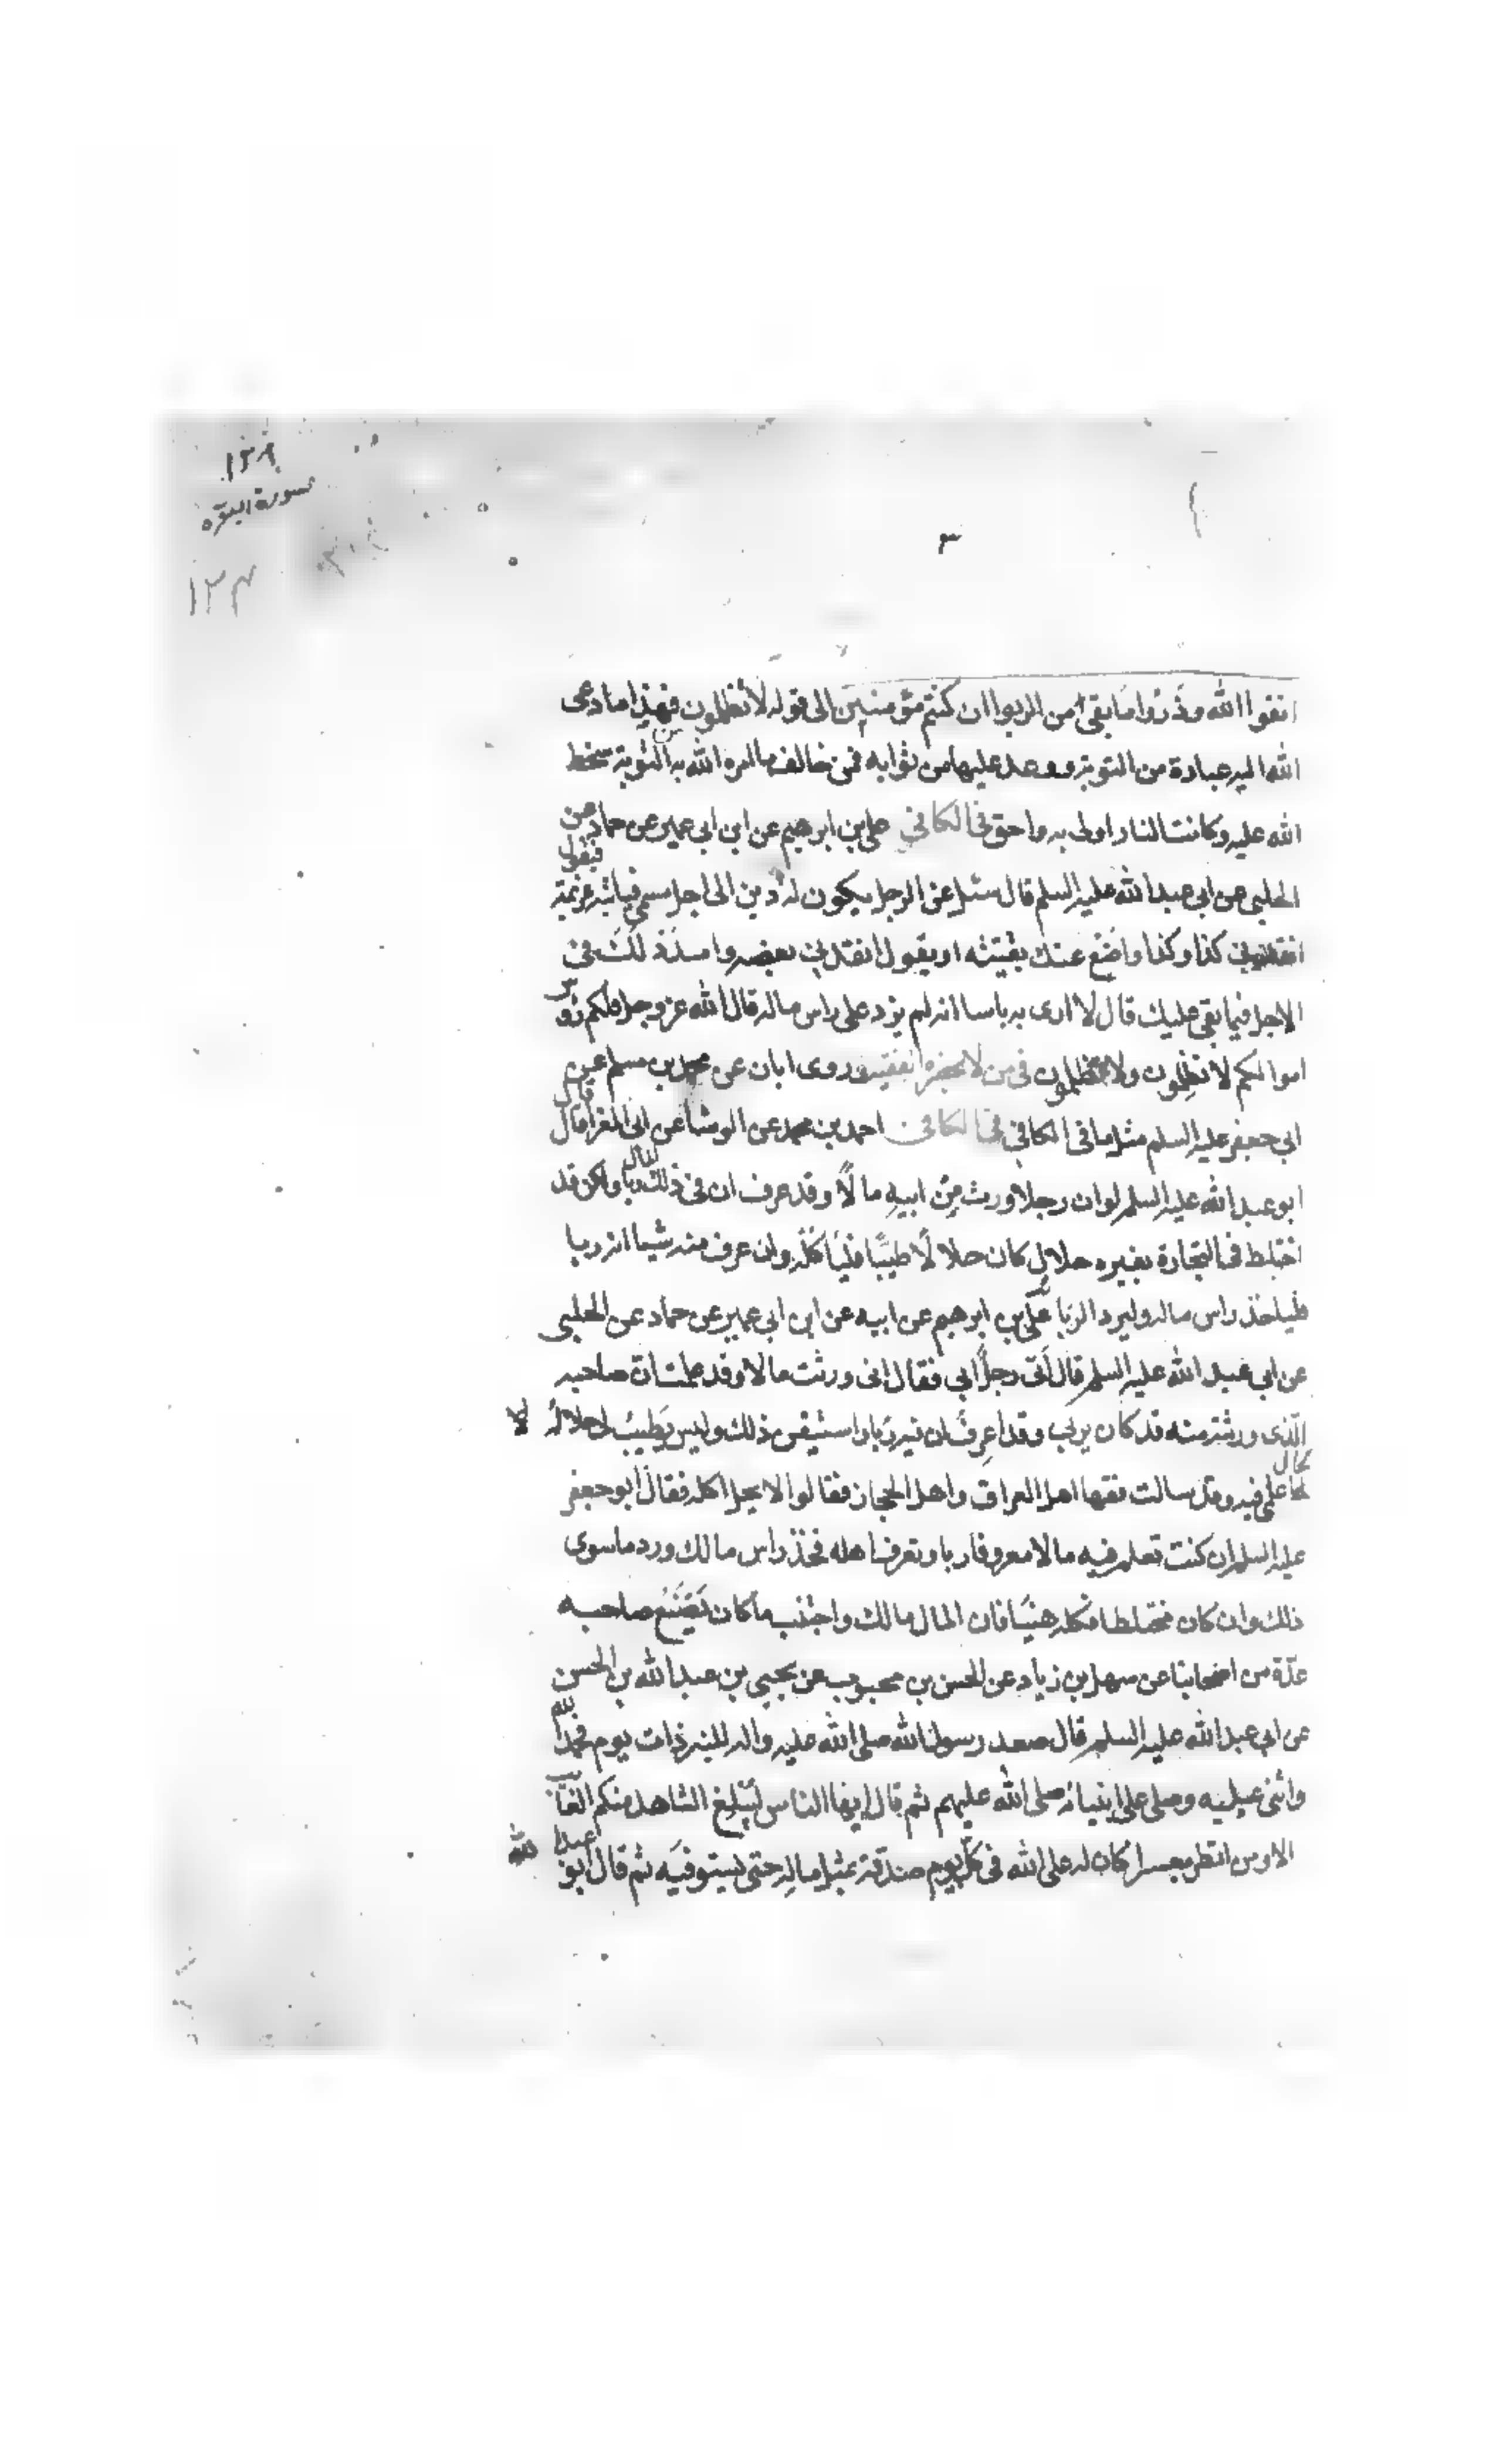 ١٣٨
سورة البقره
١٣٤
٣
اتقوا الله وذَرُوا مَا بَقِىَ من الربوا ان كنتم مؤمنين الى قوله لا تظلمون فهذا ما دعى
الله اليه عباده من التوبة ووعد عليها من ثوابه فمن خالف ما امره الله به من التوبة سخط
الله عليه وكانت النار اولى به واحق فى الكافى على بن ابرهيم عن ابن ابى عمير عن حماد عن
الحلبى عن ابى عبد الله عليه السلم قال سئل عن الرجل يكون له دين الى اجل مسمى فياتيه غريمه فيقول
انقدنى كذا وكذا واضع عنك بقيته او يقول انقدنى بعضه وامد لك فى
الاجل فيما بقى عليك قال لا ارى به باسا انه لم يزد على راس ماله قال الله عز وجل فلكم رؤس
اموالكم لا تظلمون ولا تظلمون فى من لا يحضره الفقيه وروى ابان عن محمد بن مسلم عن
ابى جعفر عليه السلم مثل ما فى الكافى فى الكافى احمد بن محمد عن الوشا عن ابى المغرا قال قال
ابو عبد الله عليه السلم لو ان رجلا ورث مِن ابيهِ مالًا وقد عرف ان فى ذلك المال ربا ولكن قد
اختلط فى التجارة بغيره حلال كان حلالًا طيبًا فليأكله وان عرف منه شيئا انه ربا
فلياخذ راس ماله وليرد الربا على بن ابرهيم عن ابيه عن ابن ابى عمير عن حماد عن الحلبى
عن ابى عبد الله عليه السلم قال اَتى رجل ابى فقال انى ورثت مالا وقد علمت انّ صاحبه
الّذى ورثته منه قد كان يربى وقد اعرف ان فيه ربا واستيقن ذلك وليس يَطيبُ لى حلاله
لحال علمى فيه وقد سالت فقها اهل العراق واهل الحجاز فقالوا لا يحل اكله فقال ابو جعفر
عليه السلم ان كنت تعلم فيه مالا معروفا ربا وتعرف اهله فخذ راس مالك ورد ما سوى
ذلك وان كان مختلطا فكله هنيئا فان المال مالك واجتنب ما كان يَصْنَع صاحبه
عدّة من اصحابنا عن سهل بن زياد عن الحسن بن محبوب عن يحيى بن عبد الله بن الحسن
عن ابى عبد الله عليه السلم قال صعد رسول الله صلى الله عليه واله المنبر ذات يوم فحمد الله
واثنى عليه وصلى على انبيائه صلى الله عليهم ثم قال ايها الناس ليُبَلِغ الشاهد منكم الغائب
الا ومن انظر معسرا كان له على الله فى كل يوم صدقة بمثل ماله حتى يستوفيَه ثم قال ابو عبد الله